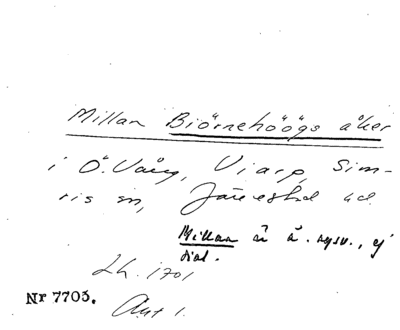 Millan Biörnehöögs åker
i Ö. Vång, Viarp, Sim-
ris sn, Järrestad hd.
Millan är ä. nysv., ej
dial.
Lh. 1701
Nr 7703.
Akt 1.